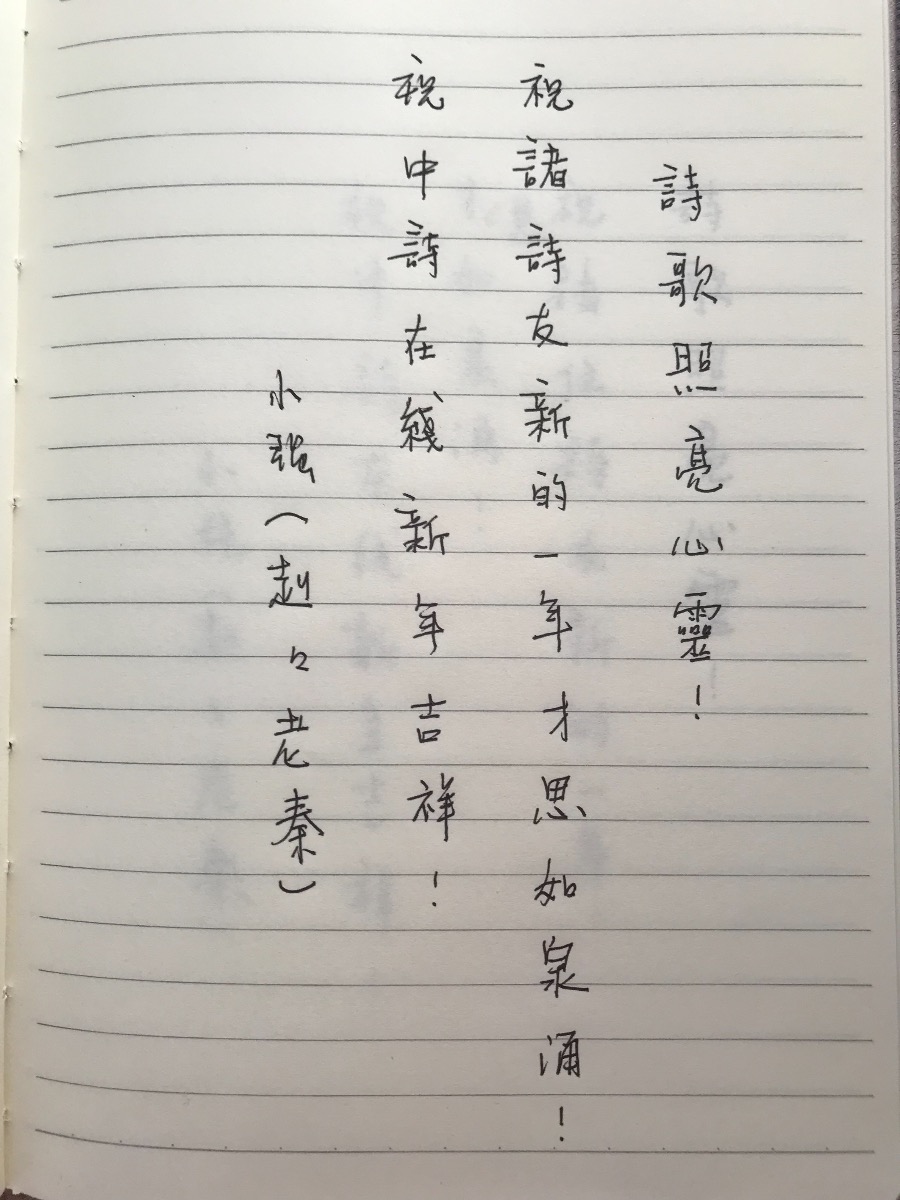 詩歌照亮心靈!
祝諸詩友新的一年才思如泉涌!
祝中詩在綫新年吉祥!
小強(赳々老秦)